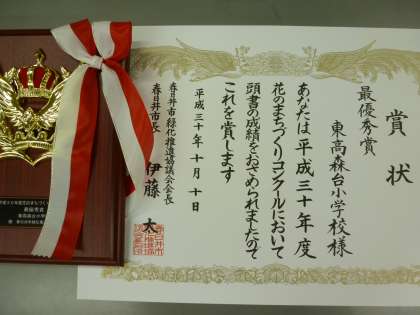 賞状
最優秀賞
東高森台小学校様
あなたは平成三十年度
花のまちづくりコンクールにおいて
頭書の成績をおさめられましたので
これを賞します
平成三十年十月十日
春日井市緑化推進協議会会長
春日井市長 伊藤太
最優秀賞